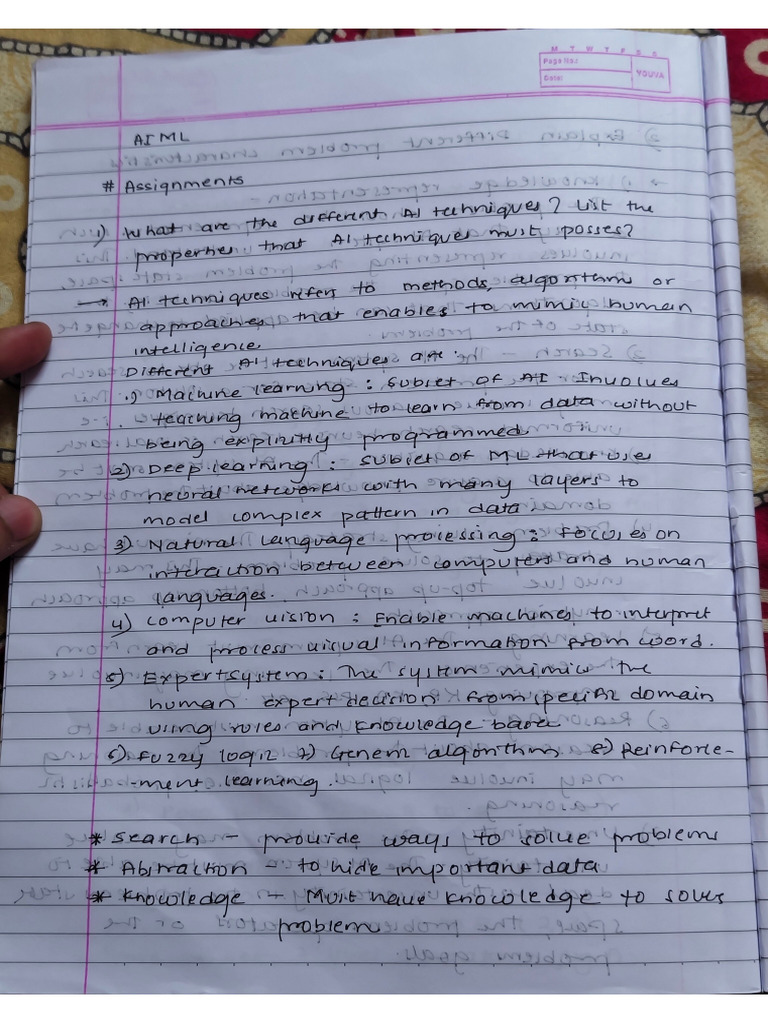 M T W T F S S
Page No.:
Date:
YOUVA
AI ML
# Assignments
1) What are the different AI techniques? List the
properties that AI techniques must posses?
→ AI techniques refers to methods, algorithms or
approaches that enables to mimic human
intelligence.
Different AI techniques are:
1) Machine learning : Subset of AI. Involves
teaching machine to learn from data without
being explicitly programmed.
2) Deep learning : subset of ML that uses
neural networks with many layers to
model complex pattern in data.
3) Natural language processing : Focuses on
interaction between computers and human
languages.
4) Computer vision : Enable machines to interpret
and process visual information from word.
5) Expert system : The system mimics the
human expert decision from specific domain
using rules and knowledge base
6) Fuzzy logic 7) Genem algorithm 8) Reinforce-
-ment learning.
* Search - provide ways to solve problems
* Abstraction - to hide important data
* Knowledge - Must have knowledge to solves
problem